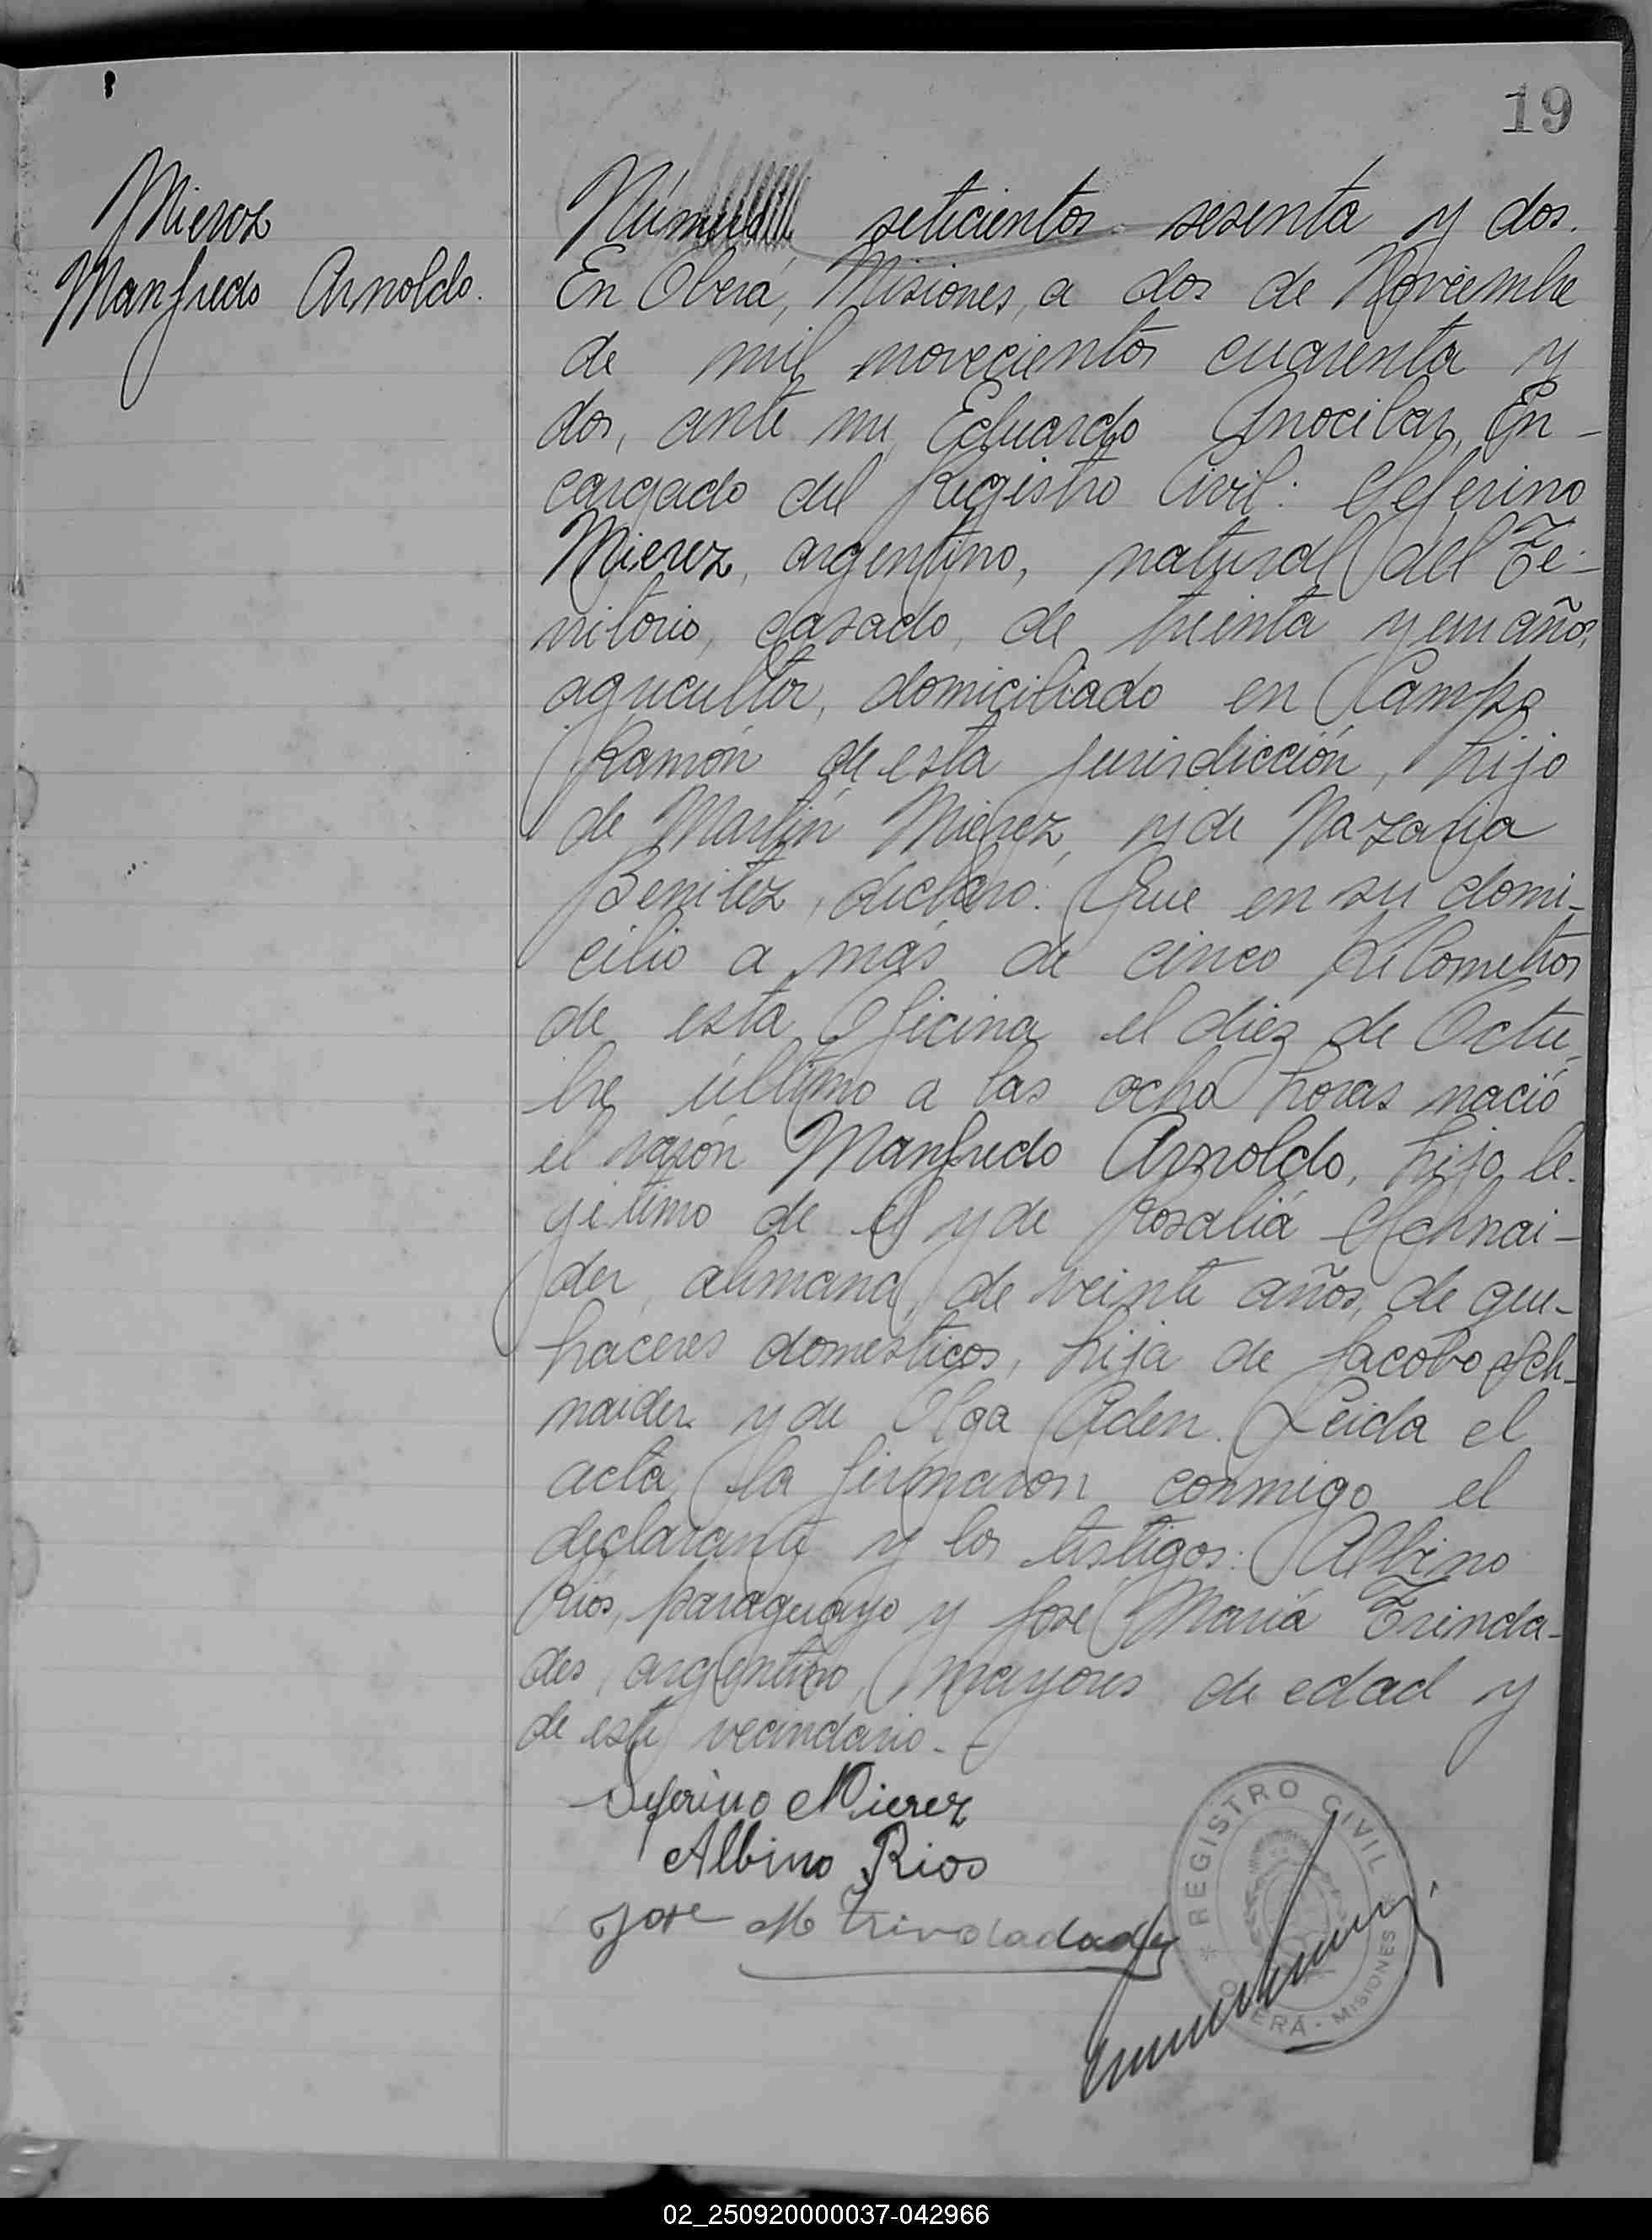 19
Mierez
Manfredo Arnoldo.
Número seticientos sesenta y dos.
En Oberá, Misiones, a dos de Noviembre
de mil novecientos cuarenta y
dos, ante mi, Eduardo Anocibar, En-
cargado del Registro Civil: Seferino
Mierez, argentino, natural del Te-
rritorio, casado, de treinta y un años,
agricultor, domiciliado en Campo
Ramón de esta jurisdicción, hijo
de Martín Mierez, y de Nazaria
Benitez, declaró: Que en su domi-
cilio a más de cinco kilometros
de esta Oficina el diez de Octu-
bre último a las ocho horas nació
el varón Manfredo Arnoldo, hijo le-
gitimo de él y de Rosalía Schnai-
der, alemana, de veinte años, de que-
haceres domésticos, hija de Jacobo Sch-
naider y de Olga Aden. Leida el
acta, la firmaron conmigo el
declarante y los testigos: Albino
Ríos, paraguayo y José María Trinda-
des, argentino, mayores de edad y
de este vecindario.-
Seferino Mierez
Albino Rios
Jose M Trindadade
* REGISTRO CIVIL *
OBERÁ - MISIONES
02_250920000037-042966